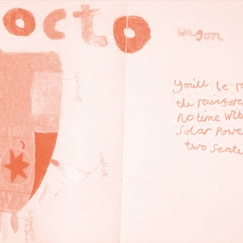 octo
wagon
You'll be r
the rainfore
no time with
Solar Powe
two seate